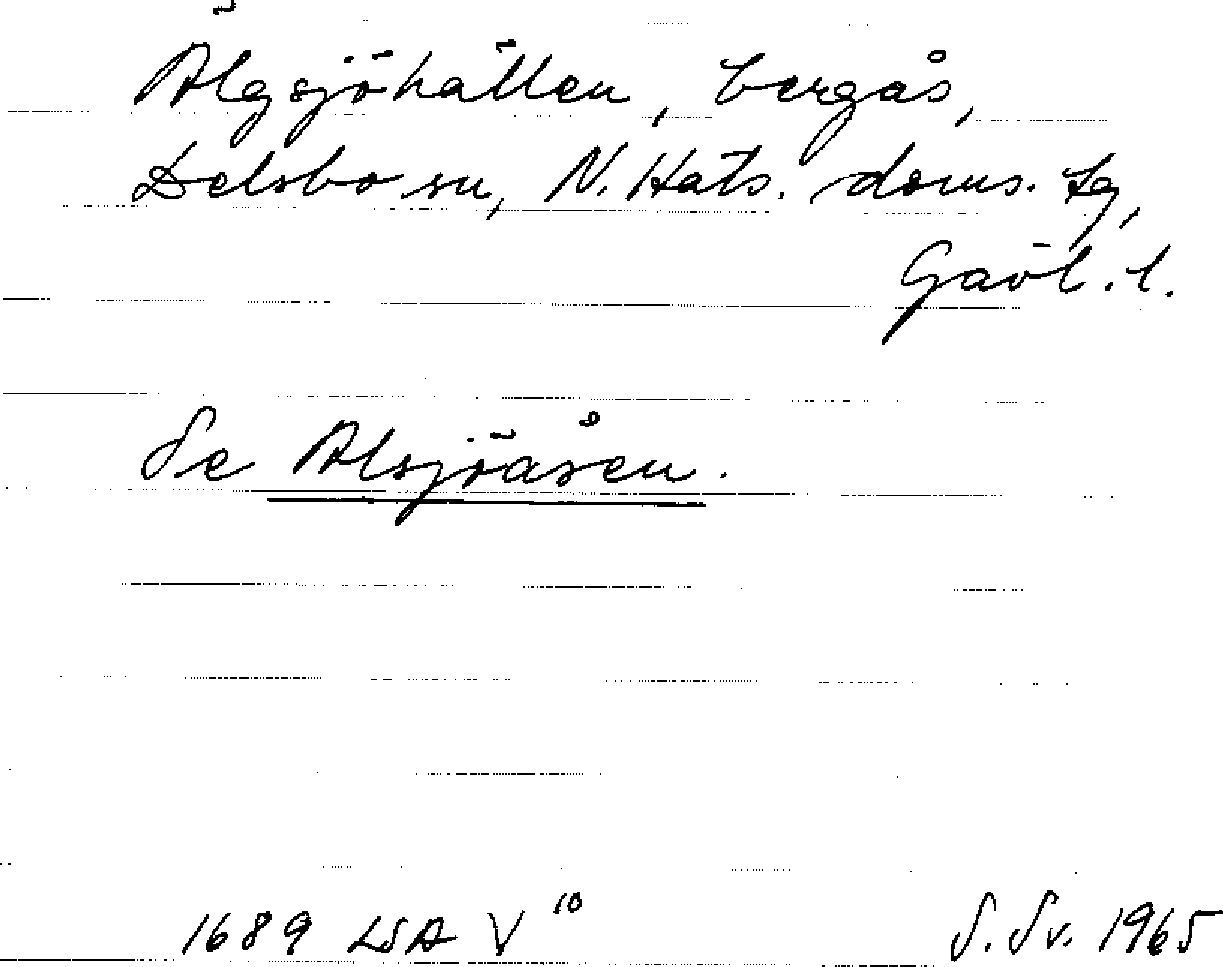 Älgsjöhällen, bergås,
Delsbo sn, N. Häls. doms. tg,
Gävl. l.
Se Alsjöåsen.
1689 LSA V 10
S. Sv. 1965